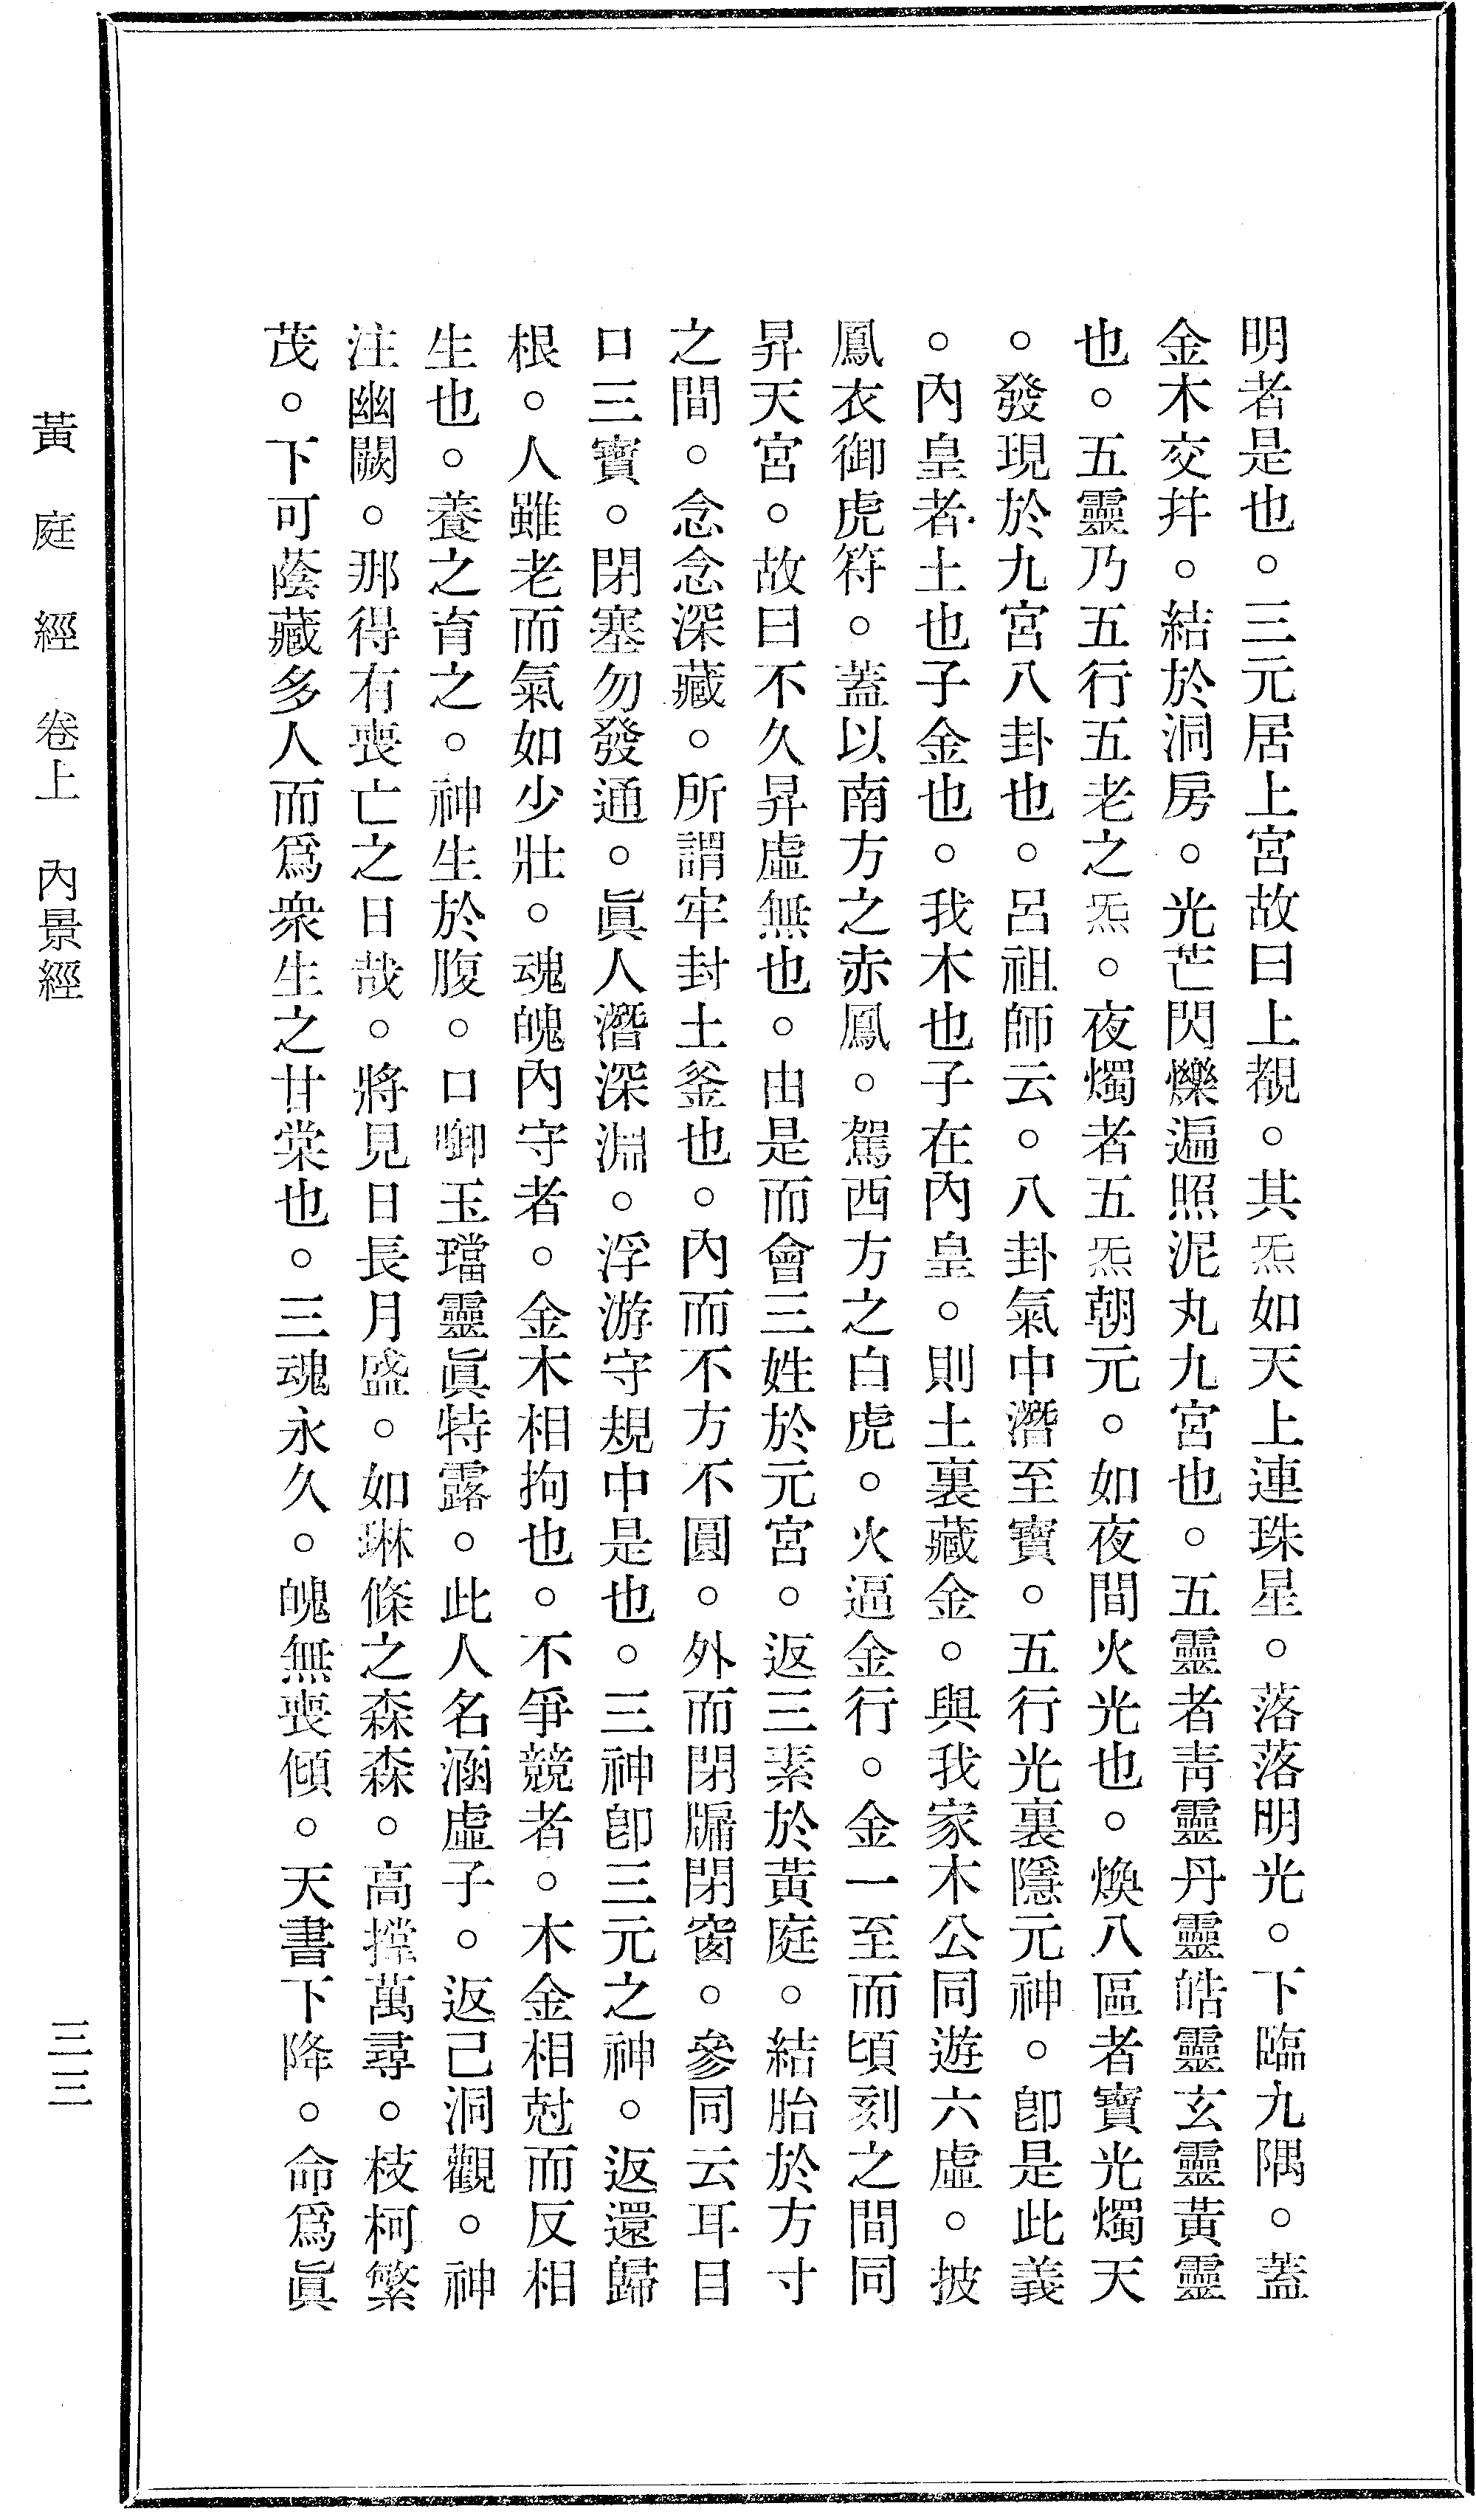 明者是也。三元居上宮故曰上覩。其炁如天上連珠星。落落明光。下臨九隅。蓋
金木交幷。結於洞房。光芒閃爍遍照泥丸九宮也。五靈者靑靈丹靈皓靈玄靈黃靈
也。五靈乃五行五老之炁。夜燭者五炁朝元。如夜間火光也。煥八區者寶光燭天
。發現於九宮八卦也。呂祖師云。八卦氣中潛至寶。五行光裏隱元神。卽是此義
。內皇者土也子金也。我木也子在內皇。則土裏藏金。與我家木公同遊六虛。披
鳳衣御虎符。蓋以南方之赤鳳。駕西方之白虎。火逼金行。金一至而頃刻之間同
昇天宮。故曰不久昇虛無也。由是而會三姓於元宮。返三素於黃庭。結胎於方寸
之間。念念深藏。所謂牢封土釜也。內而不方不圓。外而閉牖閉窗。參同云耳目
口三寶。閉塞勿發通。眞人潛深淵。浮游守規中是也。三神卽三元之神。返還歸
根。人雖老而氣如少壯。魂魄內守者。金木相拘也。不爭競者。木金相尅而反相
生也。養之育之。神生於腹。口啣玉璫靈眞特露。此人名涵虛子。返己洞觀。神
注幽闕。那得有喪亡之日哉。將見日長月盛。如琳條之森森。高撑萬尋。枝柯繁
茂。下可蔭藏多人而爲衆生之甘棠也。三魂永久。魄無喪傾。天書下降。命爲眞
黃庭經 卷上 內景經 三三